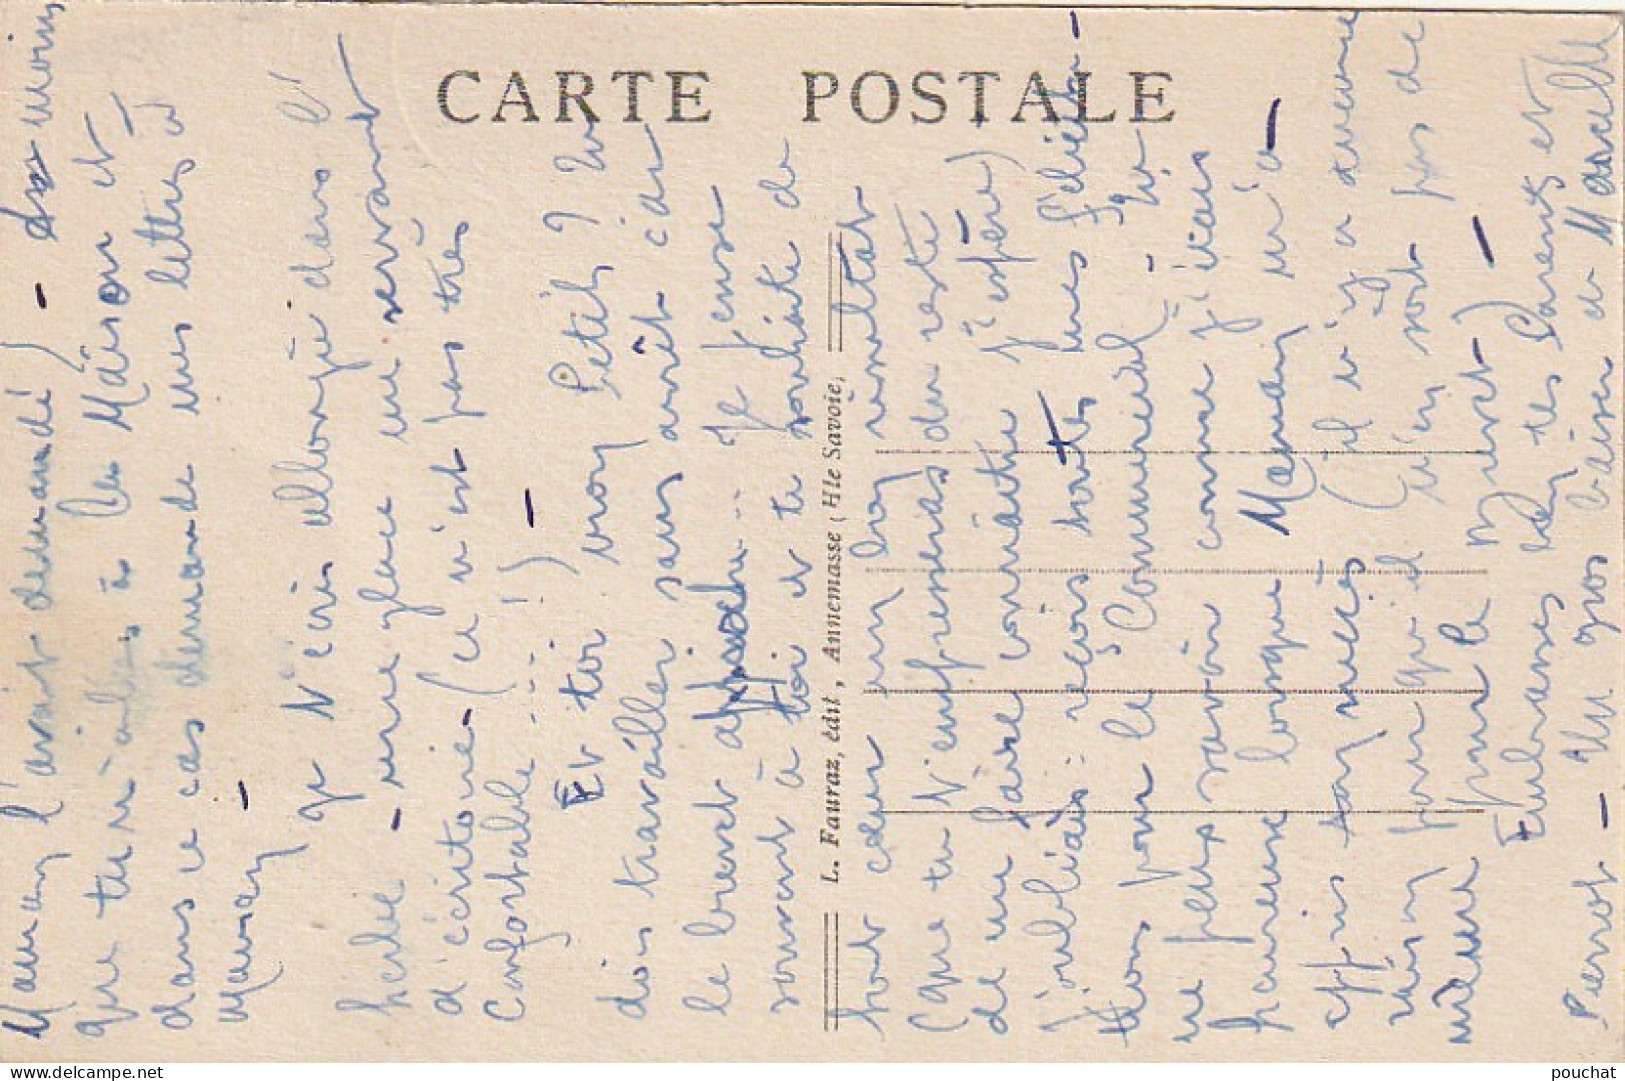 CARTE POSTALE
L. Fauraz, édit, Annemasse (Hte Savoie)
Maman l'avait demandé) - à moins
que tu n'ailles à la Maison et
dans ce cas demande mes lettres à
Maman -
Je t'écris allongée dans l'
herbe - une glace me servant
d'écritoire - (ce n'est pas très
confortable....!!) -
Et toi mon Petit ? tu
dois travailler sans arrêt car
le brevet approche... Je pense
souvent à toi et te souhaite de
tout cœur un bon résultat
(que tu t'empresseras du reste
de me faire connaître j'espère)
J'oubliais : reçois toutes mes félicita-
tions pour le Commercial -
ne peux savoir comme j'étais
heureuse lorsque Maman m'a
appris ton succès (il n'y a aucune
raison pour qu'il n'en soit pas de
même pour le Brevet) -
Embrasses bien tes Parents et
Pierrot - Un gros baiser de Marcelle
pouchat